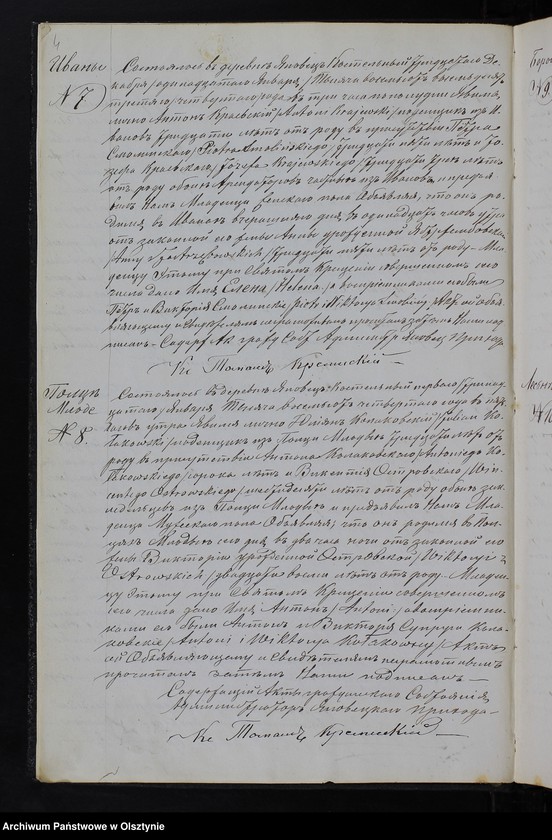 4
Иваны
№ 7
Состоялось въ деревнѣ Яновецъ Костельный тридцатаго Де-
кабря /одинадцатаго Января/ Тысяча восемьсотъ восемьдесятъ
третьяго /четвертаго/ года въ три часа пополудни Явился
лично Антонъ Краевскій /Antoni Krajewski/ поденщикъ изъ И-
вановъ тридцати лѣтъ отъ роду въ присутствіи Петра
Смолинскаго /Piotra Smolińskiego/ тридцати пяти лѣтъ и Іо-
зефа Краевскаго /Józefa Krajewskiego/ тридцати трехъ лѣтъ
отъ роду обоихъ жительст. изъ Ивановъ и предъя-
вилъ Намъ Младенца женскаго пола Объявляя, что онъ ро-
дился въ Иванахъ вчерашняго дня въ одинадцать часовъ утра
отъ законной его жены Анны урожденной
/Anny z / тридцати пяти лѣтъ отъ роду. Мла-
денцу этому при Святомъ Крещеніи совершенномъ сего
числа дано Имя Елена /Helena/ а воспріемниками его были
Петръ и Викторія Смолинскіе /Piotr i Wiktorya Smolińscy/ Актъ сей объя-
вляющему и свидѣтелямъ неграмотнымъ прочитанъ затѣмъ Нами под-
писанъ. Содерж. Акт. граж. Сост. Админист. Яновец. Прихода
Кс Томашъ
Польки
Млоде
№ 8.
Состоялось въ деревнѣ Яновецъ Костельный перваго /тринад-
цатаго/ Января Тысяча восемьсотъ четвертаго года въ
часовъ утра Явился лично Юліянъ Колаковскій /Julian Ko-
łakowski/ поденщикъ изъ Млодыхъ тридцати лѣтъ отъ
роду въ присутствіи Антона Колаковскаго /Antoniego Ko-
łakowskiego/ сорока лѣтъ и Викентія Островскаго /Win-
centego Ostrowskiego/ шестидесяти лѣтъ отъ роду обоихъ зем-
ледѣльцевъ изъ Млодыхъ и предъявилъ Намъ Мла-
денца Мужескаго пола Объявляя, что онъ родился въ
Млодыхъ сего дня въ два часа ночи отъ законной его
жены Викторіи урожденной Островской /Wiktoryi z
Ostrowskich/ двадцати восьми лѣтъ отъ роду. Младен-
цу этому при Святомъ Крещеніи совершенномъ
сего числа дано Имя Антонъ /Antoni/ а воспріемни-
ками его были Антонъ и Викторія Супруги Кола-
ковскіе /Antoni i Wiktorya Kołakowscy/ Актъ
сей Объявляющему и Свидѣтелямъ неграмотнымъ
прочитанъ затѣмъ Нами подписанъ
Содержащій Акты гражданскаго Состоянія
Администраторъ Яновецкаго Прихода
Кс Томашъ
Archiwum Państwowe w Olsztynie